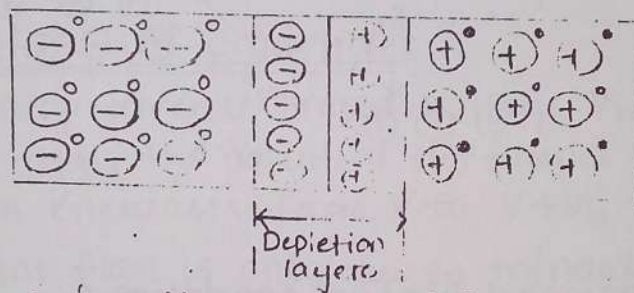 Depletion
layers